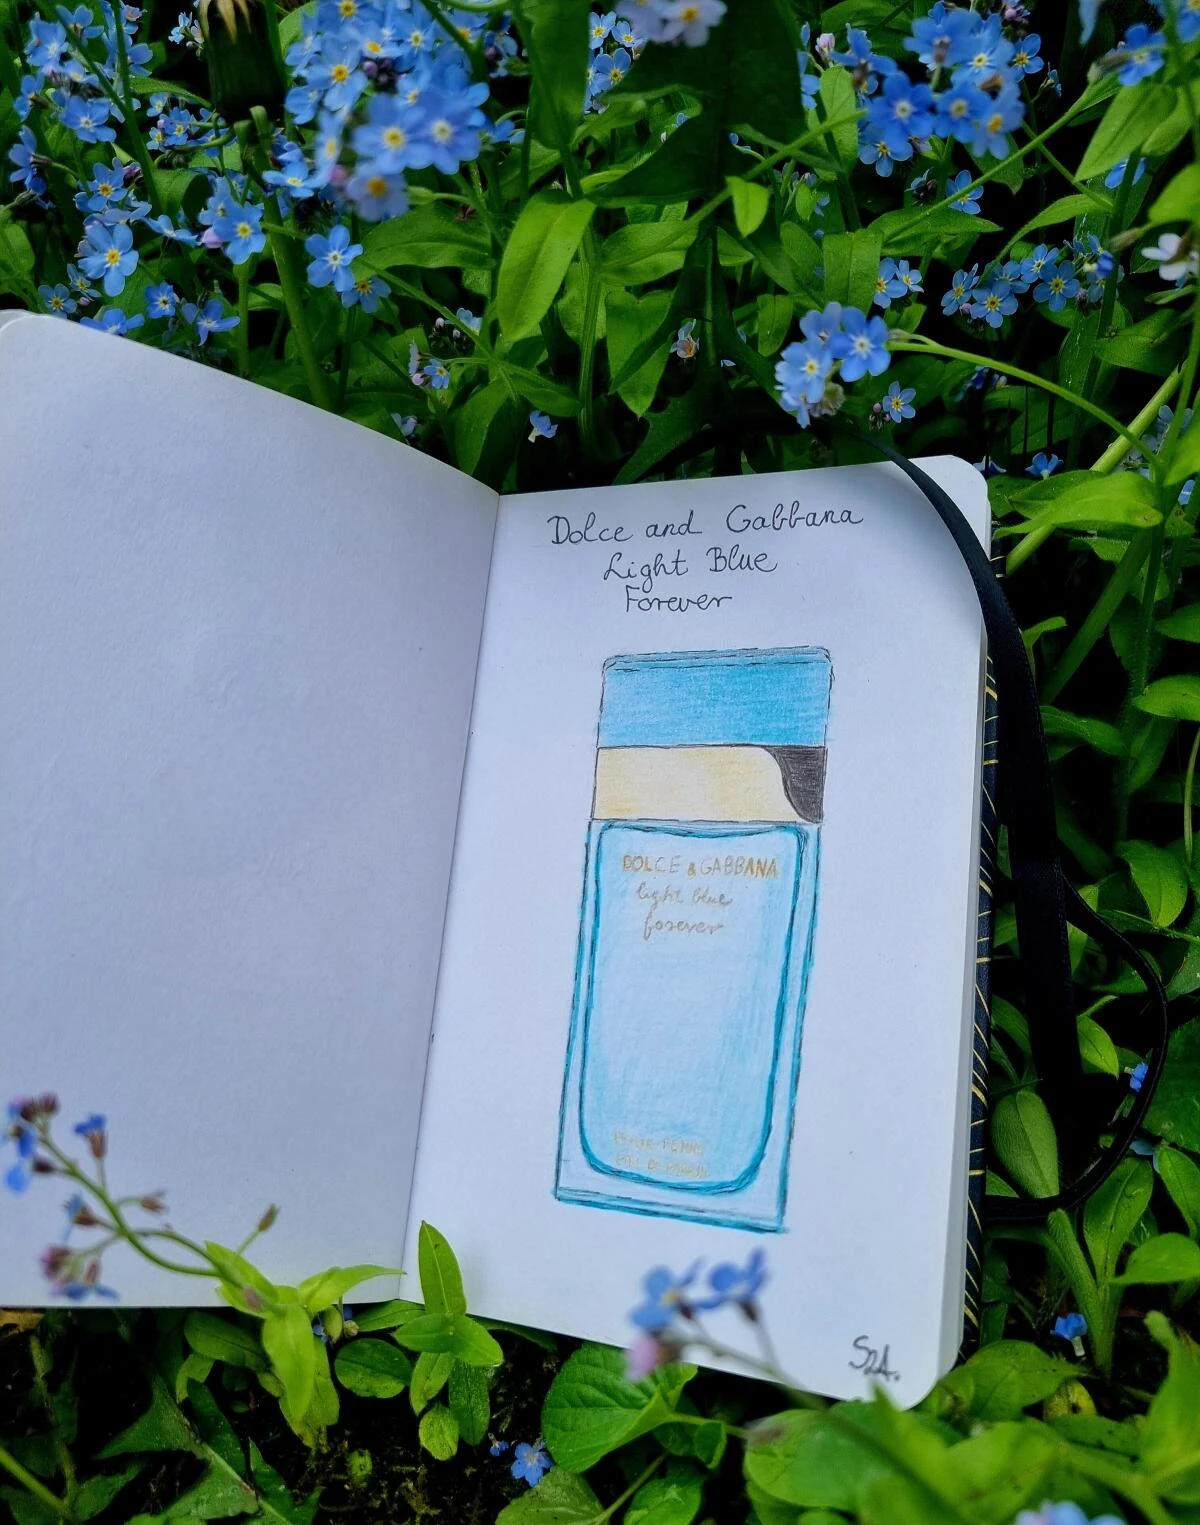 Dolce and Gabbana
Light Blue
Forever
DOLCE & GABBANA
light blue
forever
POUR FEMME
EAU DE PARFUM